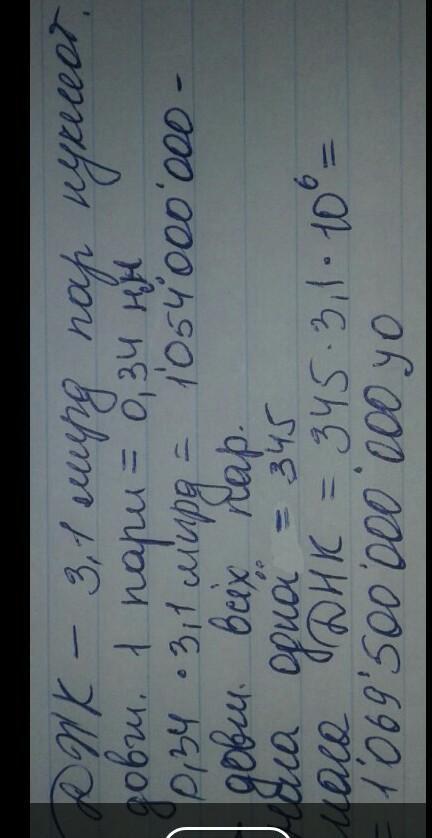 ДНК – 3,1 млрд пар нуклеот.
довж. 1 пари = 0,34 нн
0,34 · 3,1 млрд = 1'054'000'000 –
довж. всіх пар.
мала одна = 345
маса ДНК = 345 · 3,1 · 10⁶ =
= 1'069'500'000'000 уо